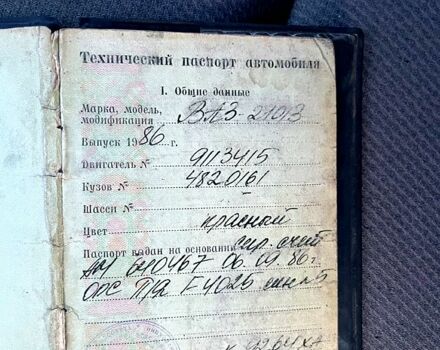 Технический паспорт автомобиля
I. Общие данные
Марка, модель,
модификация ВАЗ-21013
Выпуск 1986 г.
Двигатель № 9113415
Кузов № 4820161
Шасси №
Цвет красный
Паспорт выдан на основании
640467 06.09.86 г.